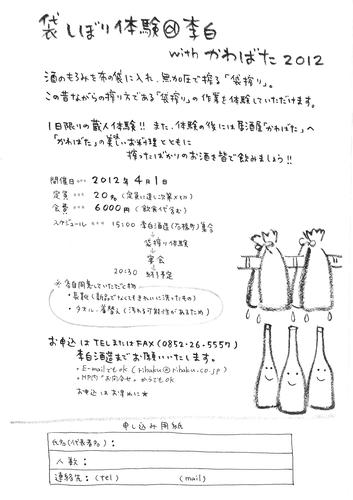 袋しぼり体験@李白
with かわばた 2012
酒のもろみを布の袋に入れ、無加圧で搾る「袋搾り」。
この昔ながらの搾り方である「袋搾り」の作業を体験していただけます。
1日限りの蔵人体験!! また、体験の後には居酒屋「かわばた」へ
「かわばた」の美味しいお料理とともに
搾ったばかりのお酒を皆で飲みましょう!!
開催日… 2012年4月1日
定員… 20名 (定員に達し次第〆切)
会費… 6000円 (飲食代含む)
スケジュール… 15:00 李白酒造(石橋町)集合
袋搾り体験
宴会
20:30 終了予定
※各自用意していただく物
・長靴(新品でなくてもきれいに洗ったもの)
・タオル、着替え(汚れる可能性があるため)
お申込はTELまたはFAX(0852-26-5557)
李白酒造までお願いいたします。
・E-mailでもOK (rihaku@rihaku.co.jp)
・HP内"お問合せ"からでもOK
お申込はお早めに★
申し込み用紙
氏名(代表者名):
人数:
連絡先:(tel) (mail)